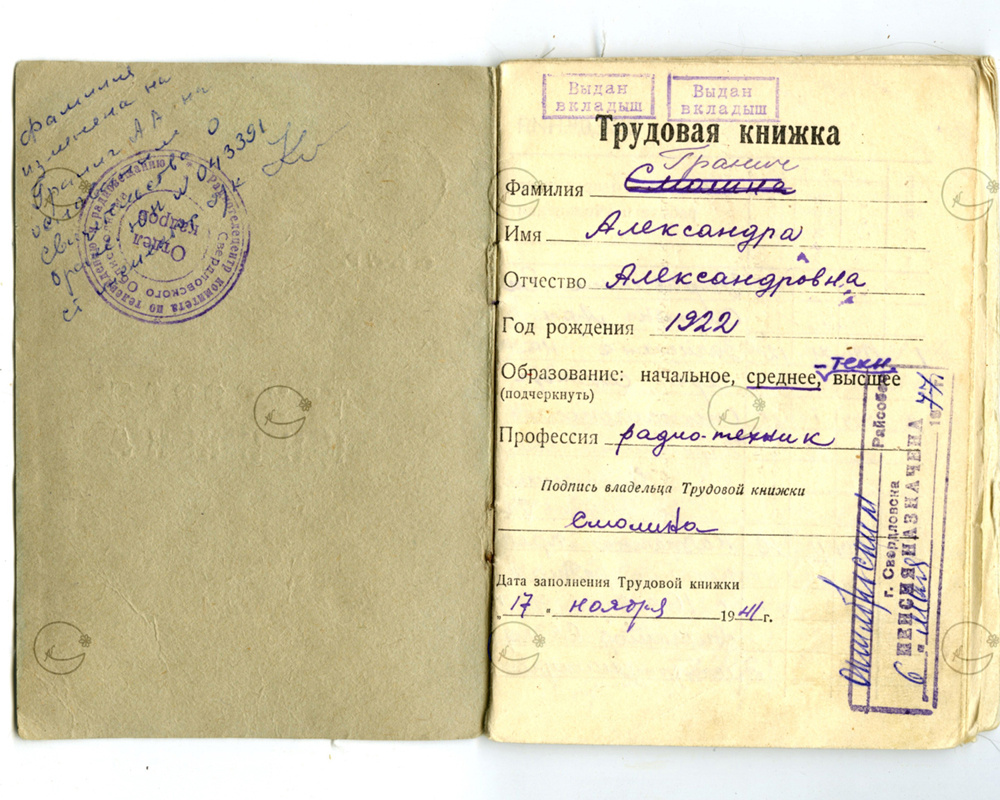 фамилия
изменена на
Гранич А.А. на
основании
свидетельства о
браке № 043391
Радиотелецентр Комитета по телевидению и радиовещанию
Свердловского
Отдел
кадров
Выдан
вкладыш
Выдан
вкладыш
Трудовая книжка
Гранич
Фамилия Смолина
Имя Александра
Отчество Александровна
Год рождения 1922
техн.
Образование: начальное, среднее, высшее
(подчеркнуть)
Профессия радио-техник
Подпись владельца Трудовой книжки
Смолина
Дата заполнения Трудовой книжки
„17 " ноября 1941 г.
Октябрьский Райсобес
г. Свердловска
ПЕНСИЯ НАЗНАЧЕНА
6 1977г.